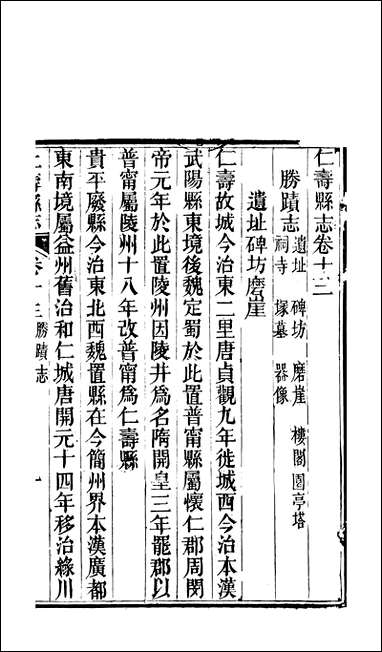 仁壽縣志卷十三
勝蹟志 遺址 碑坊 磨崖 樓閣園亭塔
祠寺 塚墓 器像
遺址碑坊磨崖
仁壽故城今治東二里唐貞觀九年徙城西今治本漢
武陽縣東境後魏定蜀於此置普甯縣屬懷仁郡周閔
帝元年於此置陵州因陵井爲名隋開皇三年罷郡以
普甯屬陵州十八年改普甯爲仁壽縣
貴平廢縣今治東北西魏置縣在今簡州界本漢廣都
東南境屬益州舊治和仁城唐開元十四年移治綠川
仁壽縣志 卷十三 勝蹟志 一